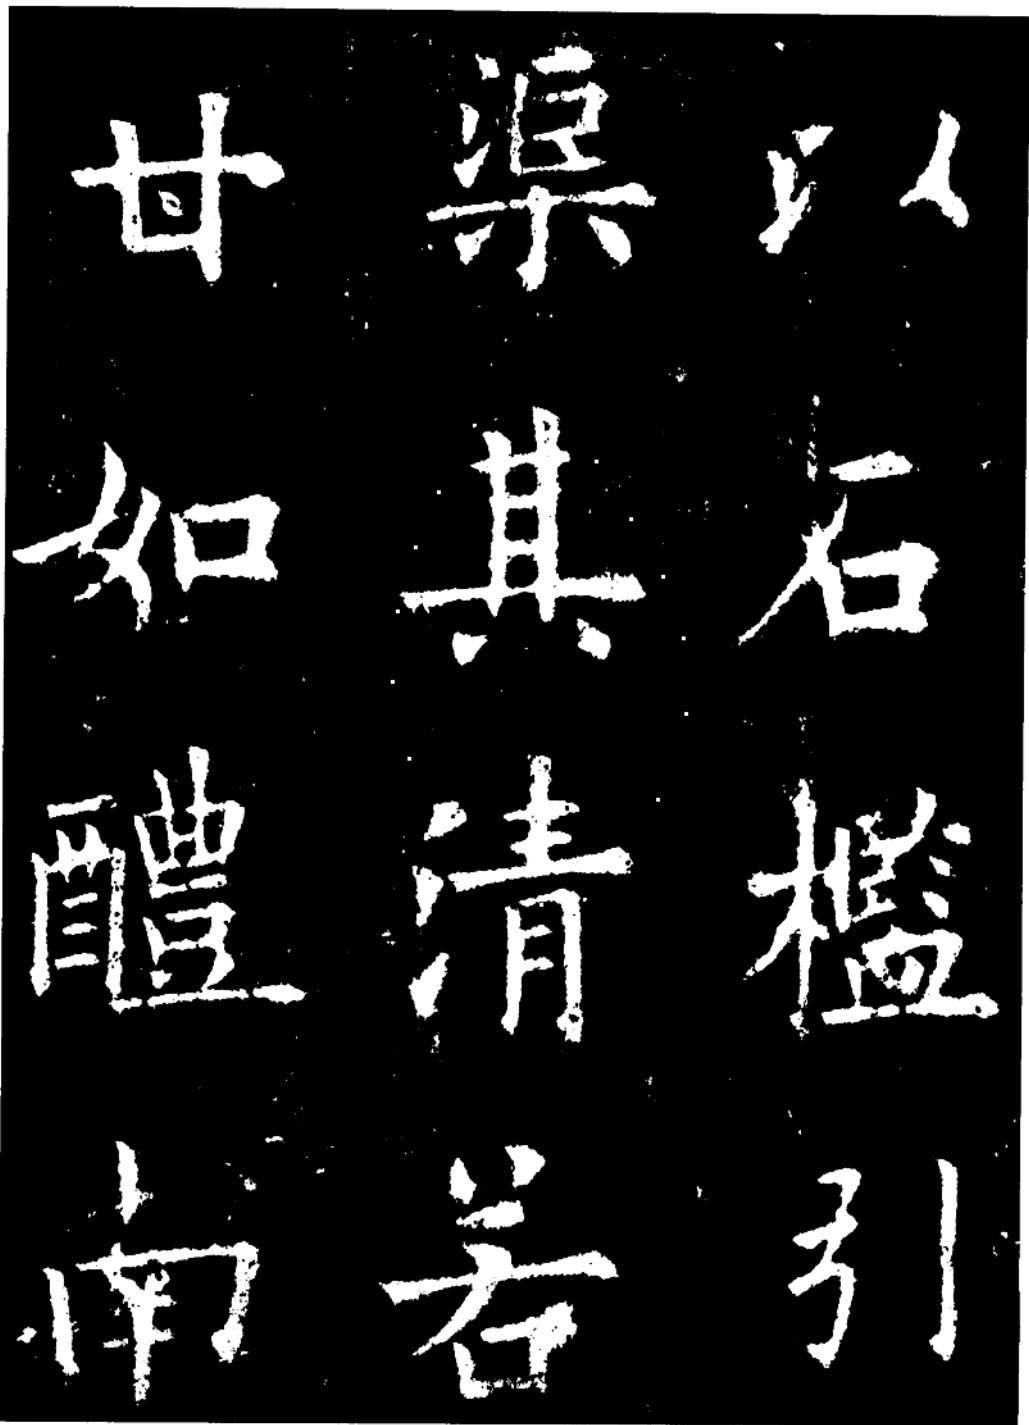 以石檻引
渠其清若
甘如醴南